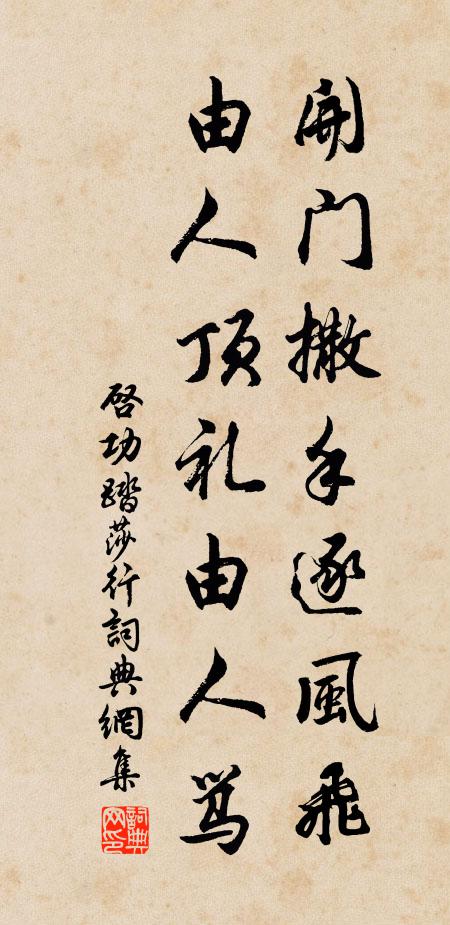 開门撒手逐風飛
由人顶礼由人骂
啓功踏莎行詞典網集
詞典网印